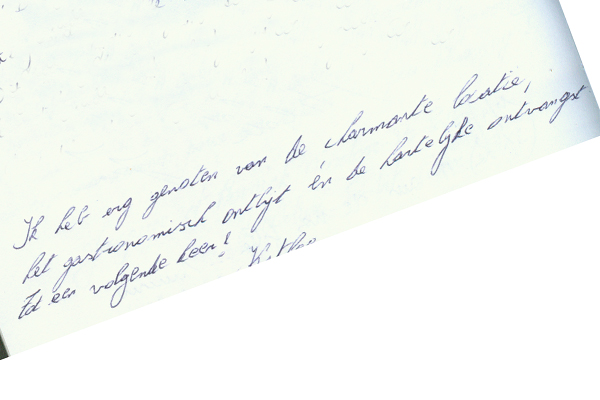 Ik heb erg genoten van de charmante locatie,
het gastronomisch ontbijt én de hartelijke ontvangst
Tot een volgende keer!